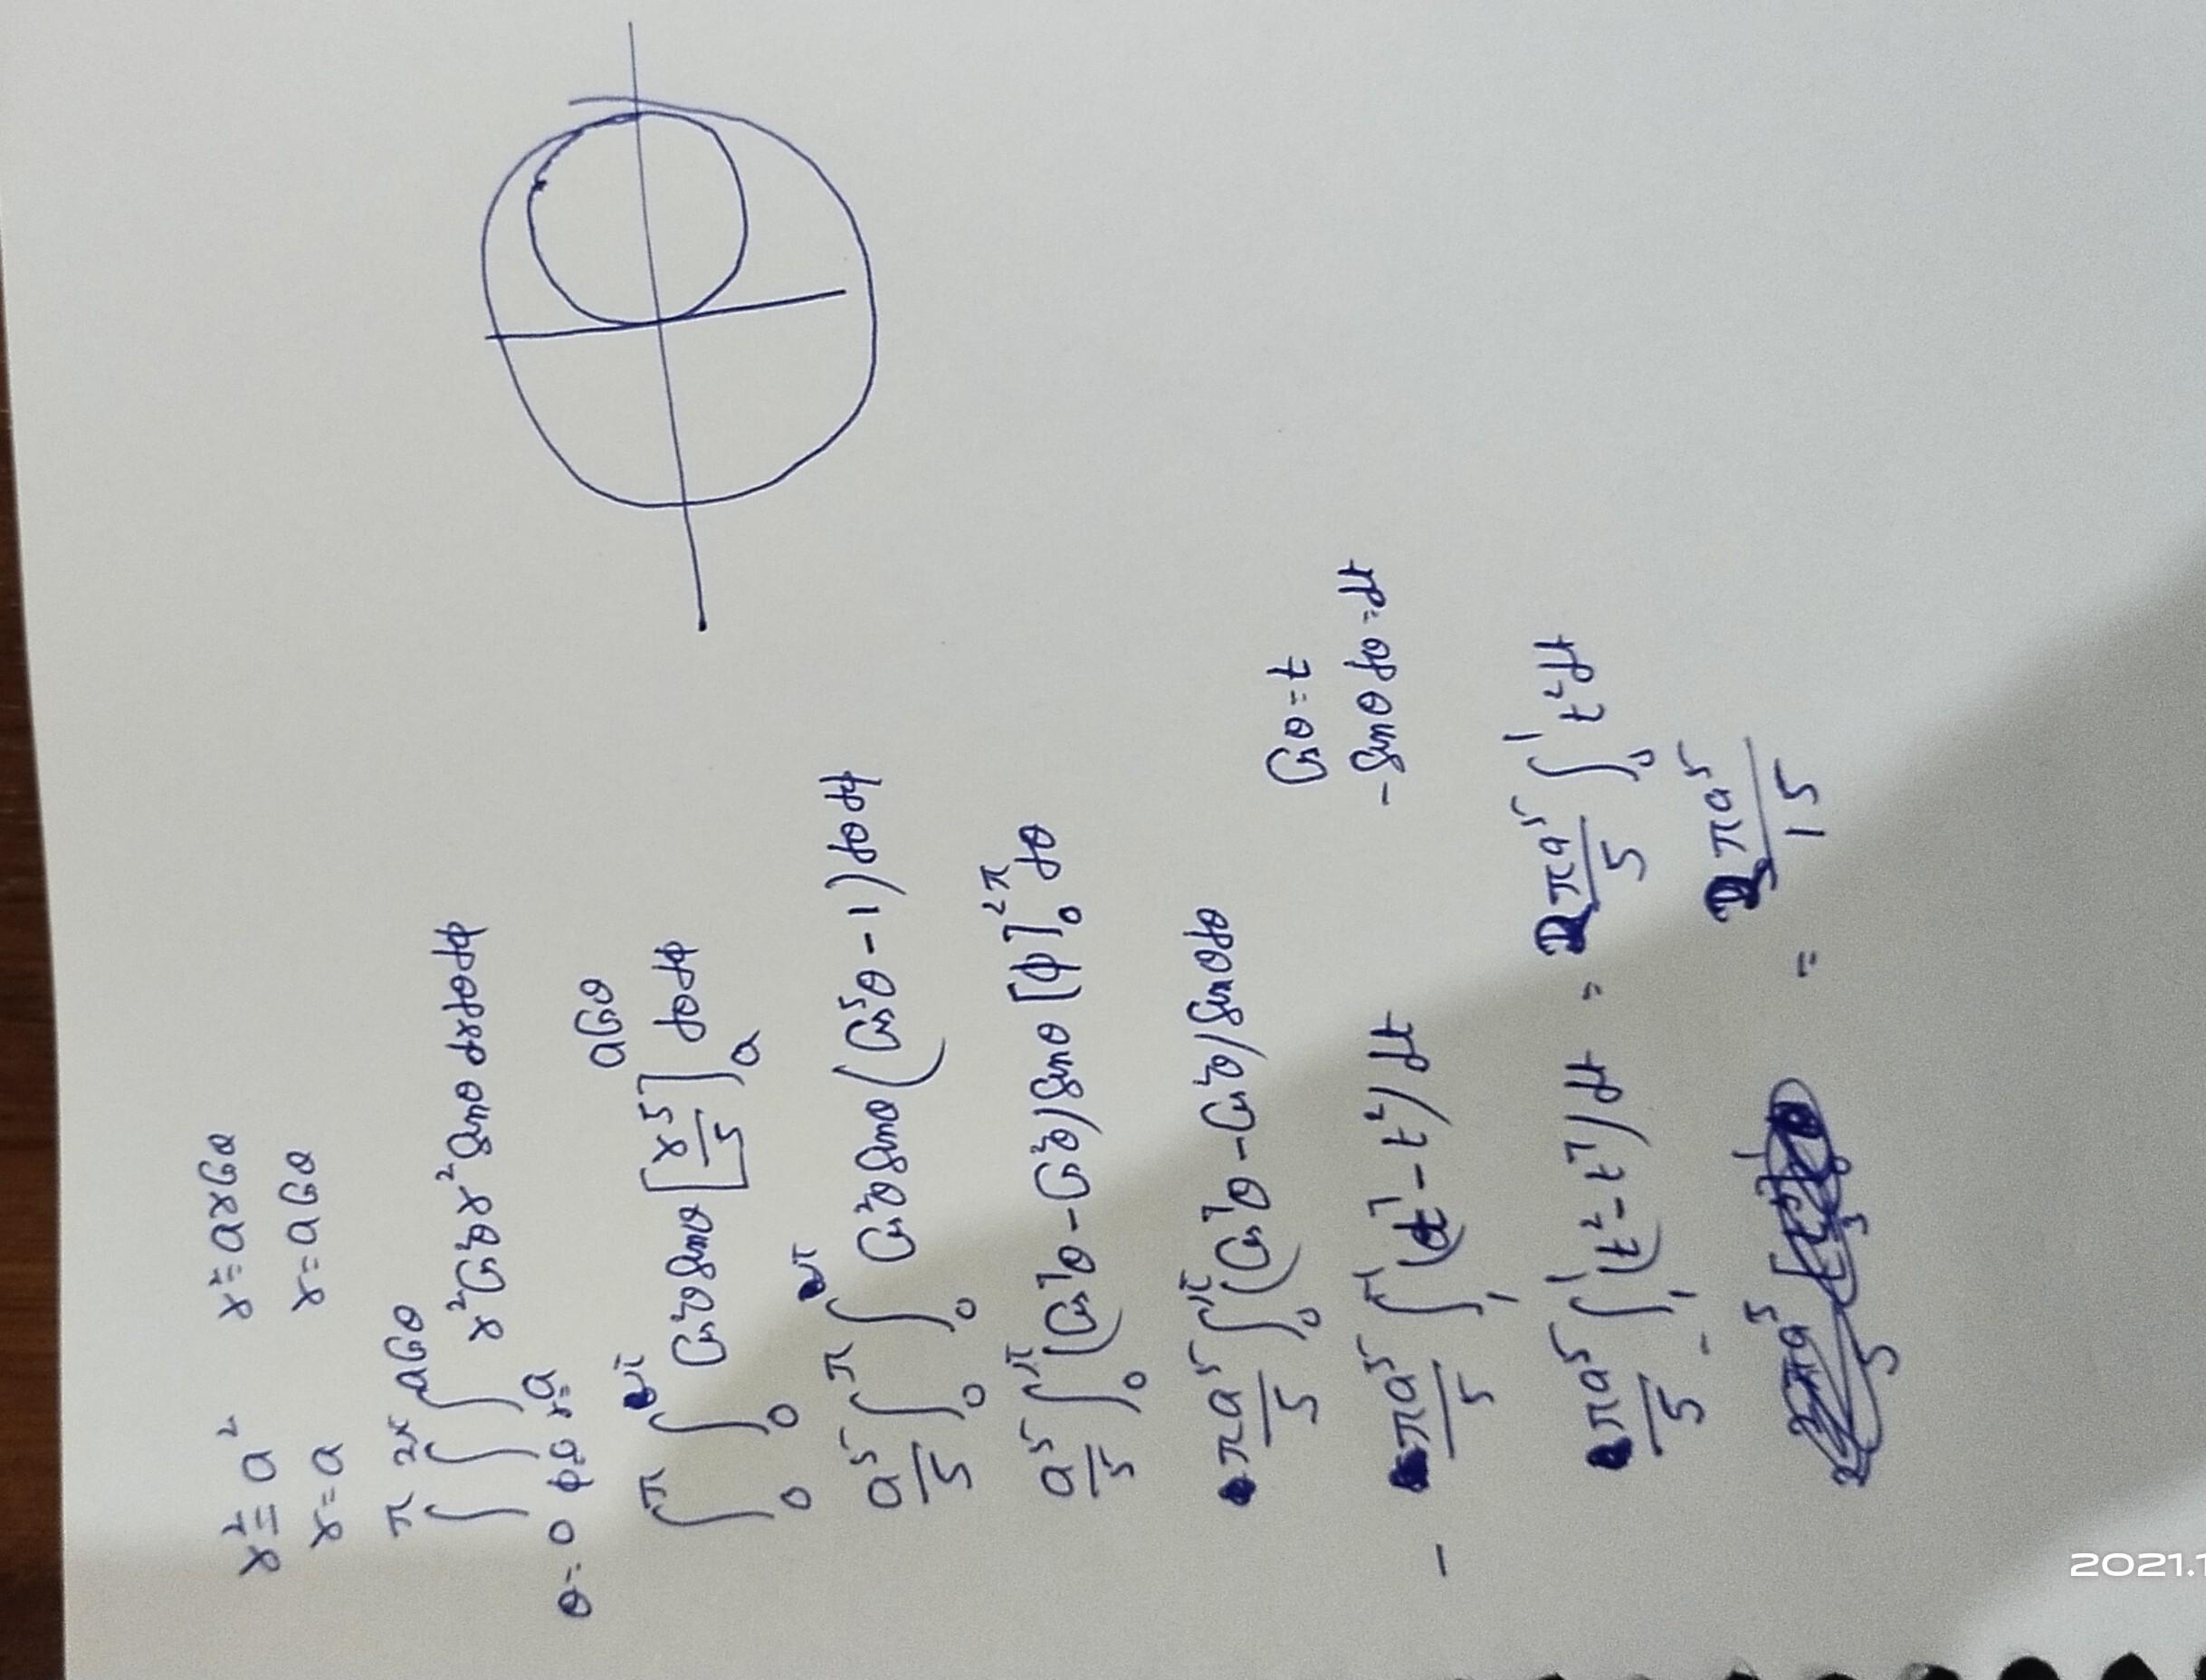 r² = a² r² = ar Cosθ
r = a r = a Cosθ
∫_{θ=0}^{π} ∫_{φ=0}^{2π} ∫_{r=a}^{a Cosθ} r² Cos²θ r² Sinθ dr dθ dφ
∫_0^π ∫_0^π Cos²θ Sinθ [r⁵/5]_a^{a Cosθ} dθ dφ
a⁵/5 ∫_0^π ∫_0^π Cos²θ Sinθ (Cos⁵θ - 1) dθ dφ
a⁵/5 ∫_0^π (Cos⁷θ - Cos²θ) Sinθ [φ]_0^{2π} dθ
πa⁵/5 ∫_0^π (Cos⁷θ - Cos²θ) Sinθ dθ
Cosθ = t
- Sinθ dθ = dt
- πa⁵/5 ∫_1^{-1} (t⁷ - t²) dt
πa⁵/5 ∫_{-1}^1 (t² - t⁷) dt = 2πa⁵/5 ∫_0^1 t² dt
= 2πa⁵/15
2021.1